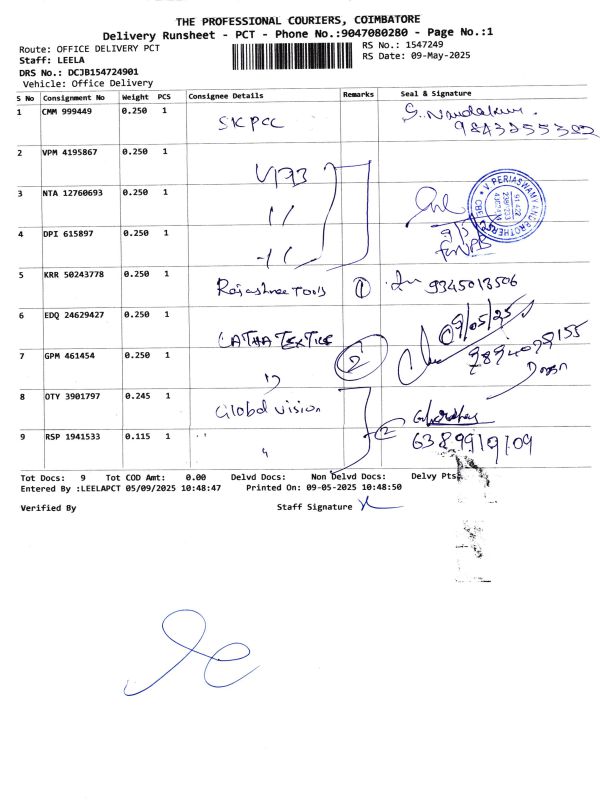 THE PROFESSIONAL COURIERS, COIMBATORE
Delivery Runsheet - PCT - Phone No.:9047080280 - Page No.:1
Route: OFFICE DELIVERY PCT
RS No.: 1547249
Staff: LEELA
RS Date: 09-May-2025
DRS No.: DCJB154724901
Vehicle: Office Delivery
S No Consignment No Weight PCS Consignee Details Remarks Seal & Signature
1 CMM 999449 0.250 1 SKPCC
2 VPM 4195867 0.250 1
3 NTA 12760693 0.250 1 11
V PERIASWAMY AND BROTHERS
CBE
4 DPI 615897 0.250 1
5 KRR 50243778 0.250 1 Rajashree Tools 1 9345013506
6 EDQ 24629427 0.250 1 LATHA TEXTILE 09/05/25
7 GPM 461454 0.250 1 2
8 OTY 3901797 0.245 1 Global vision 2
9 RSP 1941533 0.115 1 " 6389919109
Tot Docs: 9 Tot COD Amt: 0.00 Delvd Docs: Non Delvd Docs: Delvy Pts:
Entered By :LEELAPCT 05/09/2025 10:48:47 Printed On: 09-05-2025 10:48:50
Verified By Staff Signature